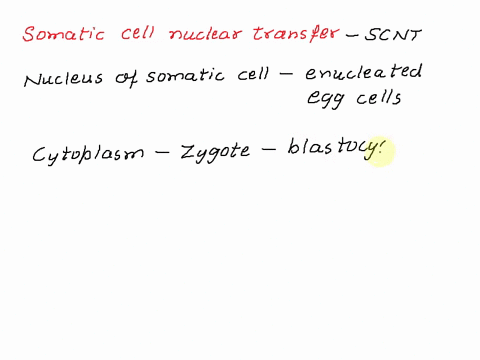 Somatic cell nuclear transfer – SCNT
Nucleus of somatic cell – enucleated
egg cells
Cytoplasm – Zygote – blastocy